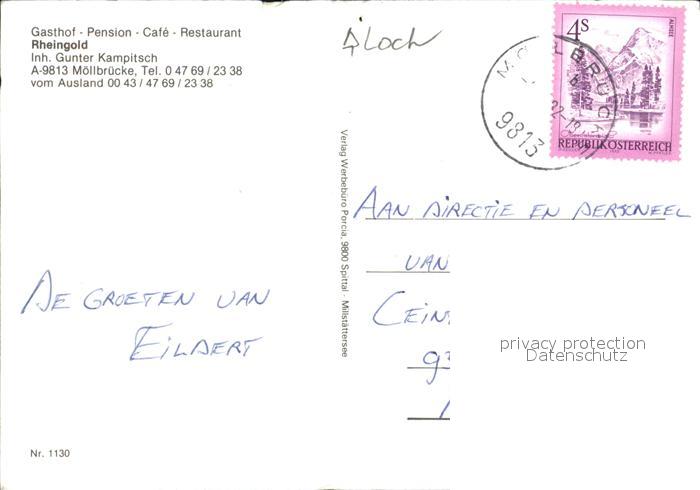 Gasthof - Pension - Café - Restaurant
Rheingold
Inh. Gunter Kampitsch
A-9813 Möllbrücke, Tel. 0 47 69 / 23 38
vom Ausland 00 43 / 47 69 / 23 38
Loch
4S
ALMSEE
REPUBLIK ÖSTERREICH
9813
Verlag Werbebüro Porcia, 9800 Spittal · Millstättersee
AAN DIRECTIE EN PERSONEEL
VAN
DE GROETEN VAN
EILDERT
privacy protection
Datenschutz
Nr. 1130